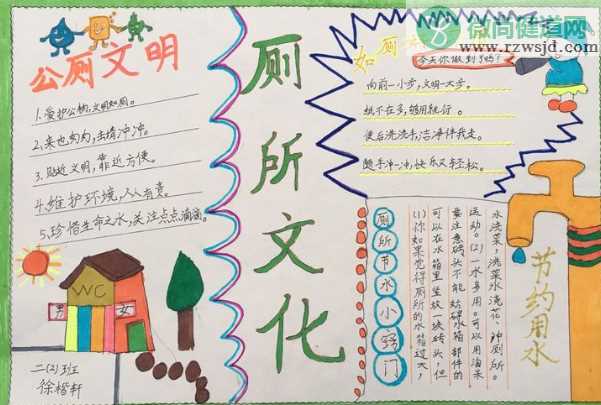 微尚健道网
www.rzwsjd.com
公厕文明
1.爱护公物,文明如厕。
2.来也匆匆,去情冲冲。
3.贴近文明,靠近方便。
4.维护环境,人人有责。
5.珍惜生命之水,关注点点滴滴。
WC
男 女
二(2)班
徐楷轩
厕所文化
如厕
今天你做到了吗?
向前一小步,文明一大步。
纸不在多,够用就行。
便后洗洗手,洁净伴我走。
随手冲一冲,快乐又轻松。
厕所节水小窍门
(1)你如果觉得厕所的水箱过大,
可以在水箱里竖放一块砖头,但
要注意砖头不能妨碍水箱部件的
运动。(2)一水多用。可以用淘米
水洗菜,洗菜水浇花、冲厕所。
节约用水